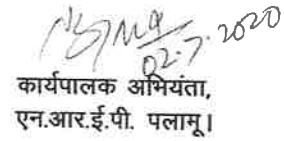 02.7.2020
कार्यपालक अभियंता,
एन.आर.ई.पी. पलामू।